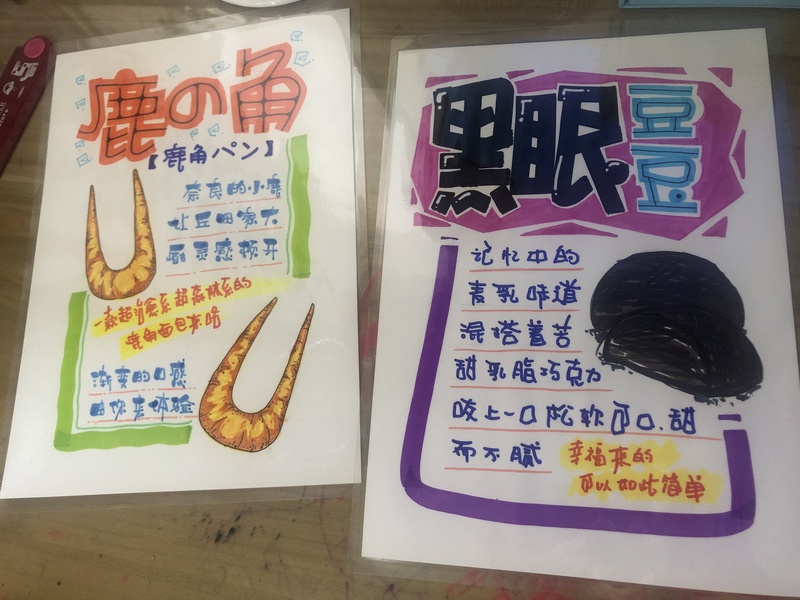 鹿の角
【鹿角パン】
奈良的小鹿
让豆田家大
厨灵感顿开
一款超治愈系超森林系的
鹿角面包来啦
渐变的口感
由你来体验
黑眼豆豆
记忆中的
麦乳味道
混搭着苦
甜乳脂巧克力
咬上一口松软可口.甜
而不腻
幸福来的
可以如此简单